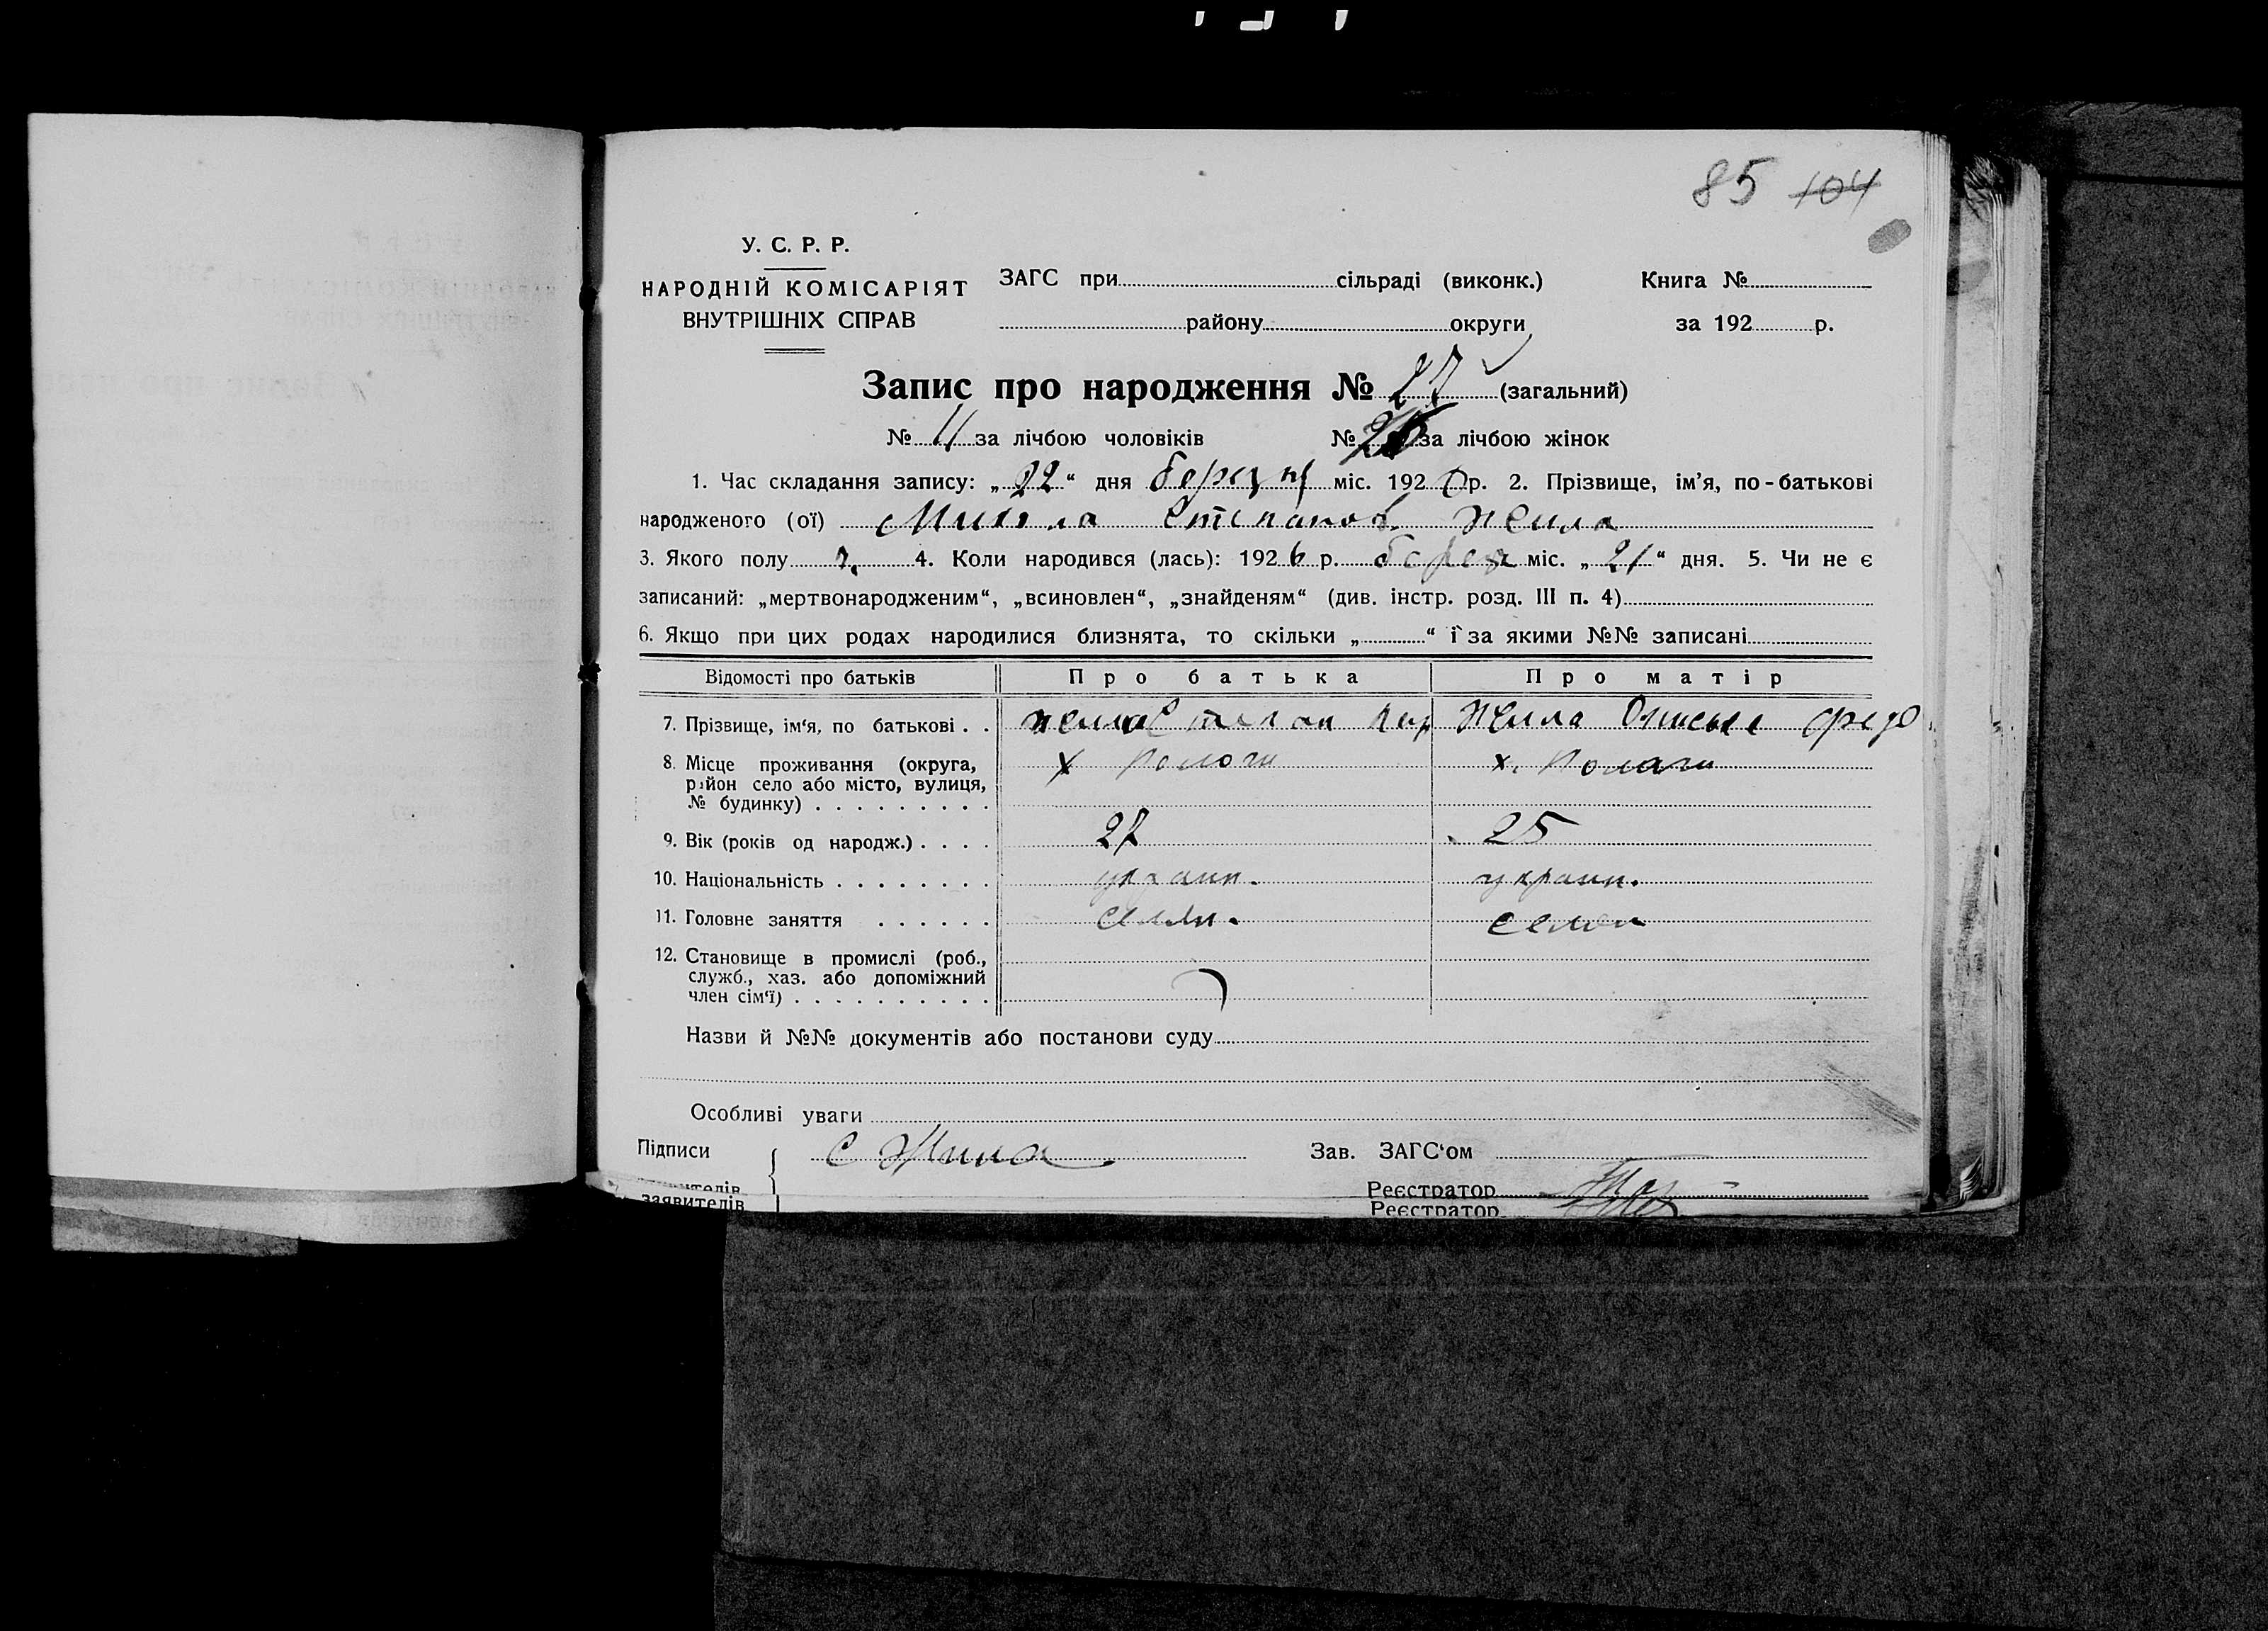 85 104
У. С. Р. Р.
НАРОДНІЙ КОМІСАРІЯТ
ВНУТРІШНІХ СПРАВ
ЗАГС при сільраді (виконк.)
району округи
Книга №
за 192 р.
Запис про народження № 27 (загальний)
№ 11 за лічбою чоловіків № за лічбою жінок
1. Час складання запису: „22“ дня березня міс. 1926 р. 2. Прізвище, ім’я, по-батькові
народженого (ої) Микола Степанов. Жила
3. Якого полу ч. 4. Коли народився (лась): 1926 р. берез міс. „21“ дня. 5. Чи не є
записаний: „мертвонародженим“, „всиновлен“, „знайденям“ (див. інстр. розд. III п. 4)
6. Якщо при цих родах народилися близнята, то скільки „ “ і за якими №№ записані
Відомості про батьків Про батька Про матір
7. Прізвище, ім‘я, по батькові . . Жила Степан Жила
8. Місце проживання (округа, х х.
район село або місто, вулиця,
№ будинку) . . . . . . . . .
9. Вік (років од народж.) . . . . 27 25
10. Національність . . . . . . . . украин. украин.
11. Головне заняття . . . . . . селян. селян
12. Становище в промислі (роб.,
служб., хаз. або допоміжний
член сім‘ї) . . . . . . . . . .
Назви й №№ документів або постанови суду
Особливі уваги
Підписи С Жила Зав. ЗАГС‘ом
Реєстратор
заявителів Реєстратор